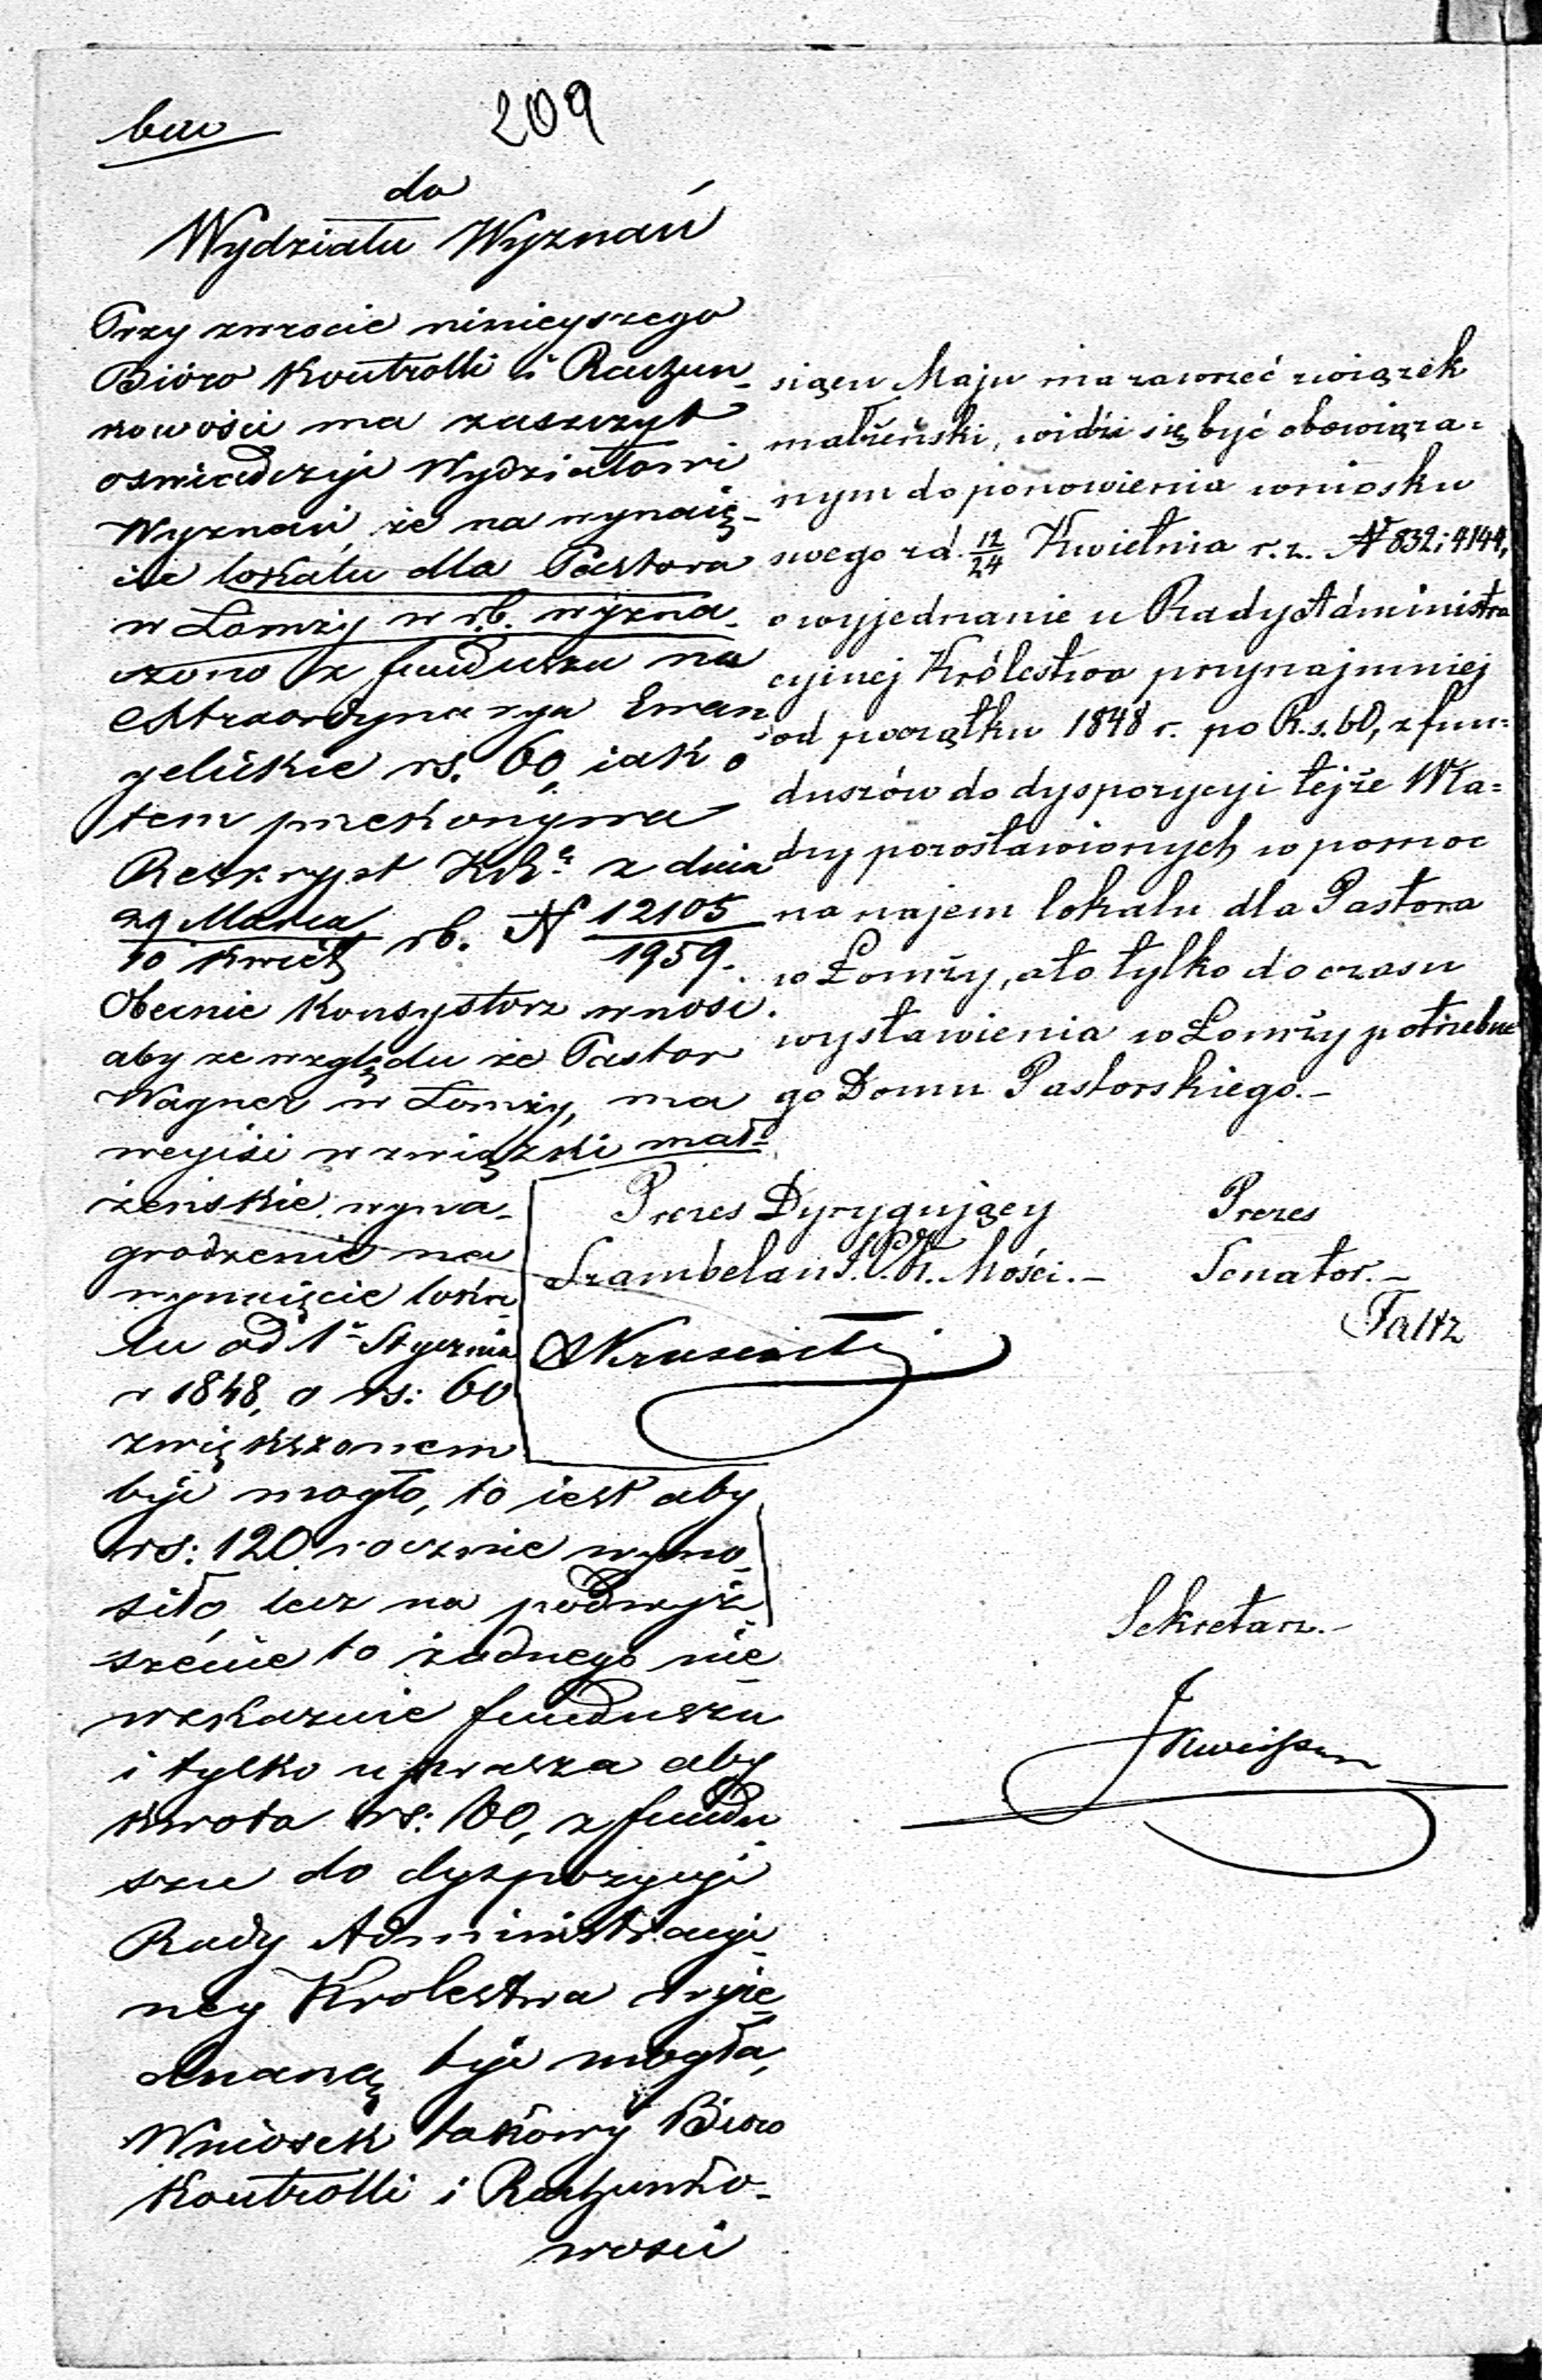 209
do
Wydziału Wyznań
Przy zwrocie ninieyszego
Bióro Kontrolli i Rachun_
kowości ma zaszczyt
oswiadczyć Wydziałowi
Wyznań, że na wynaię_
cie lokalu dla Pastora
w Łomży w r.b. wyzna_
czono z funduszu na
extraordynarya Ewan
gelickie rs. 60, iak o
tem przekonywa
Reskrypt z dnia
29 Marca / 10 Kwiet rb. N 12105 / 1959.
Obecnie Konsystorz wnosi
aby ze względu że Pastor
Wagner w Łomży, ma
weyiść w związki mał=
żeńskie wyna_
grodzenie na
wynaięcie loka_
lu od 1º Stycznia
r 1848, o rs: 60
zwiększonem
być mogło, to iest aby
rs: 120 rocznie wyno_
siło lecz na podwyż_
szenie to żadnego nie
wskazuie funduszu
i tylko uprasza aby
kwota rs: 60, z fundu_
szu do dyspozycyi
Rady Administracyi_
ney Krolestwa wyie_
dnaną być mogła,
Wniosek takowy Biuro
Kontrolli i Rachunko_
wosci
siącu Maju ma zawrzeć związek
małżeński, widzi się być obowiąza=
nym do ponowienia wniosku
swego z d. 12/24 Kwietnia r. z. N 832; 4144,
o wyjednanie u Rady Administra
cyinej Królestwa przynajmniej
od początku 1848 r. po R.s. 60, z fun=
duszów do dyspozycyi tejże Wła=
dzy pozostawionych w pomoc
na najem lokalu dla Pastora
w Łomży, a to tylko do czasu
wystawienia w Łomży potrzebne
go Domu Pastorskiego.–
Prezes Dyrygujący
Szambelan J.C.K. Mości.–
Prezes
Senator.–
Faltz
Sekretarz.–